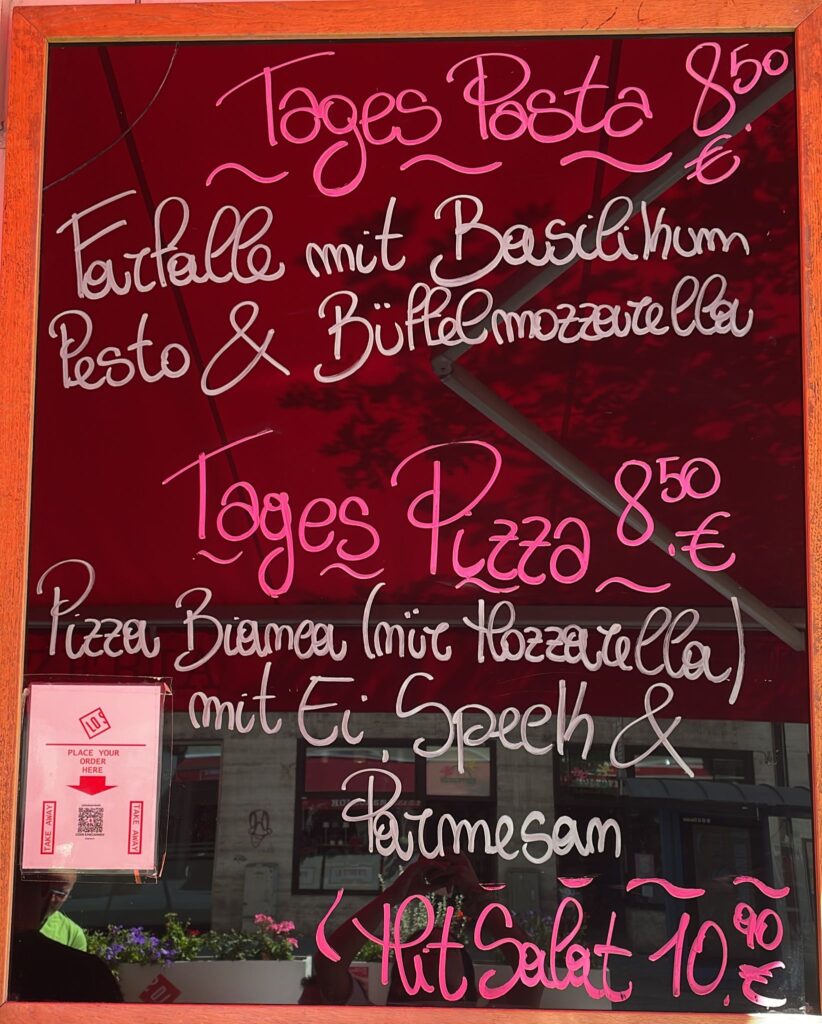 Tages Pasta 8.50 €
Farfalle mit Basilikum
Pesto & Büffelmozzarella
Tages Pizza 8.50 €
Pizza Bianca (nür Mozzarella)
mit Ei, Speck &
Parmesan
(Mit Salat 10.90 €
LO
PLACE YOUR
ORDER
HERE
TAKE AWAY
TAKE AWAY